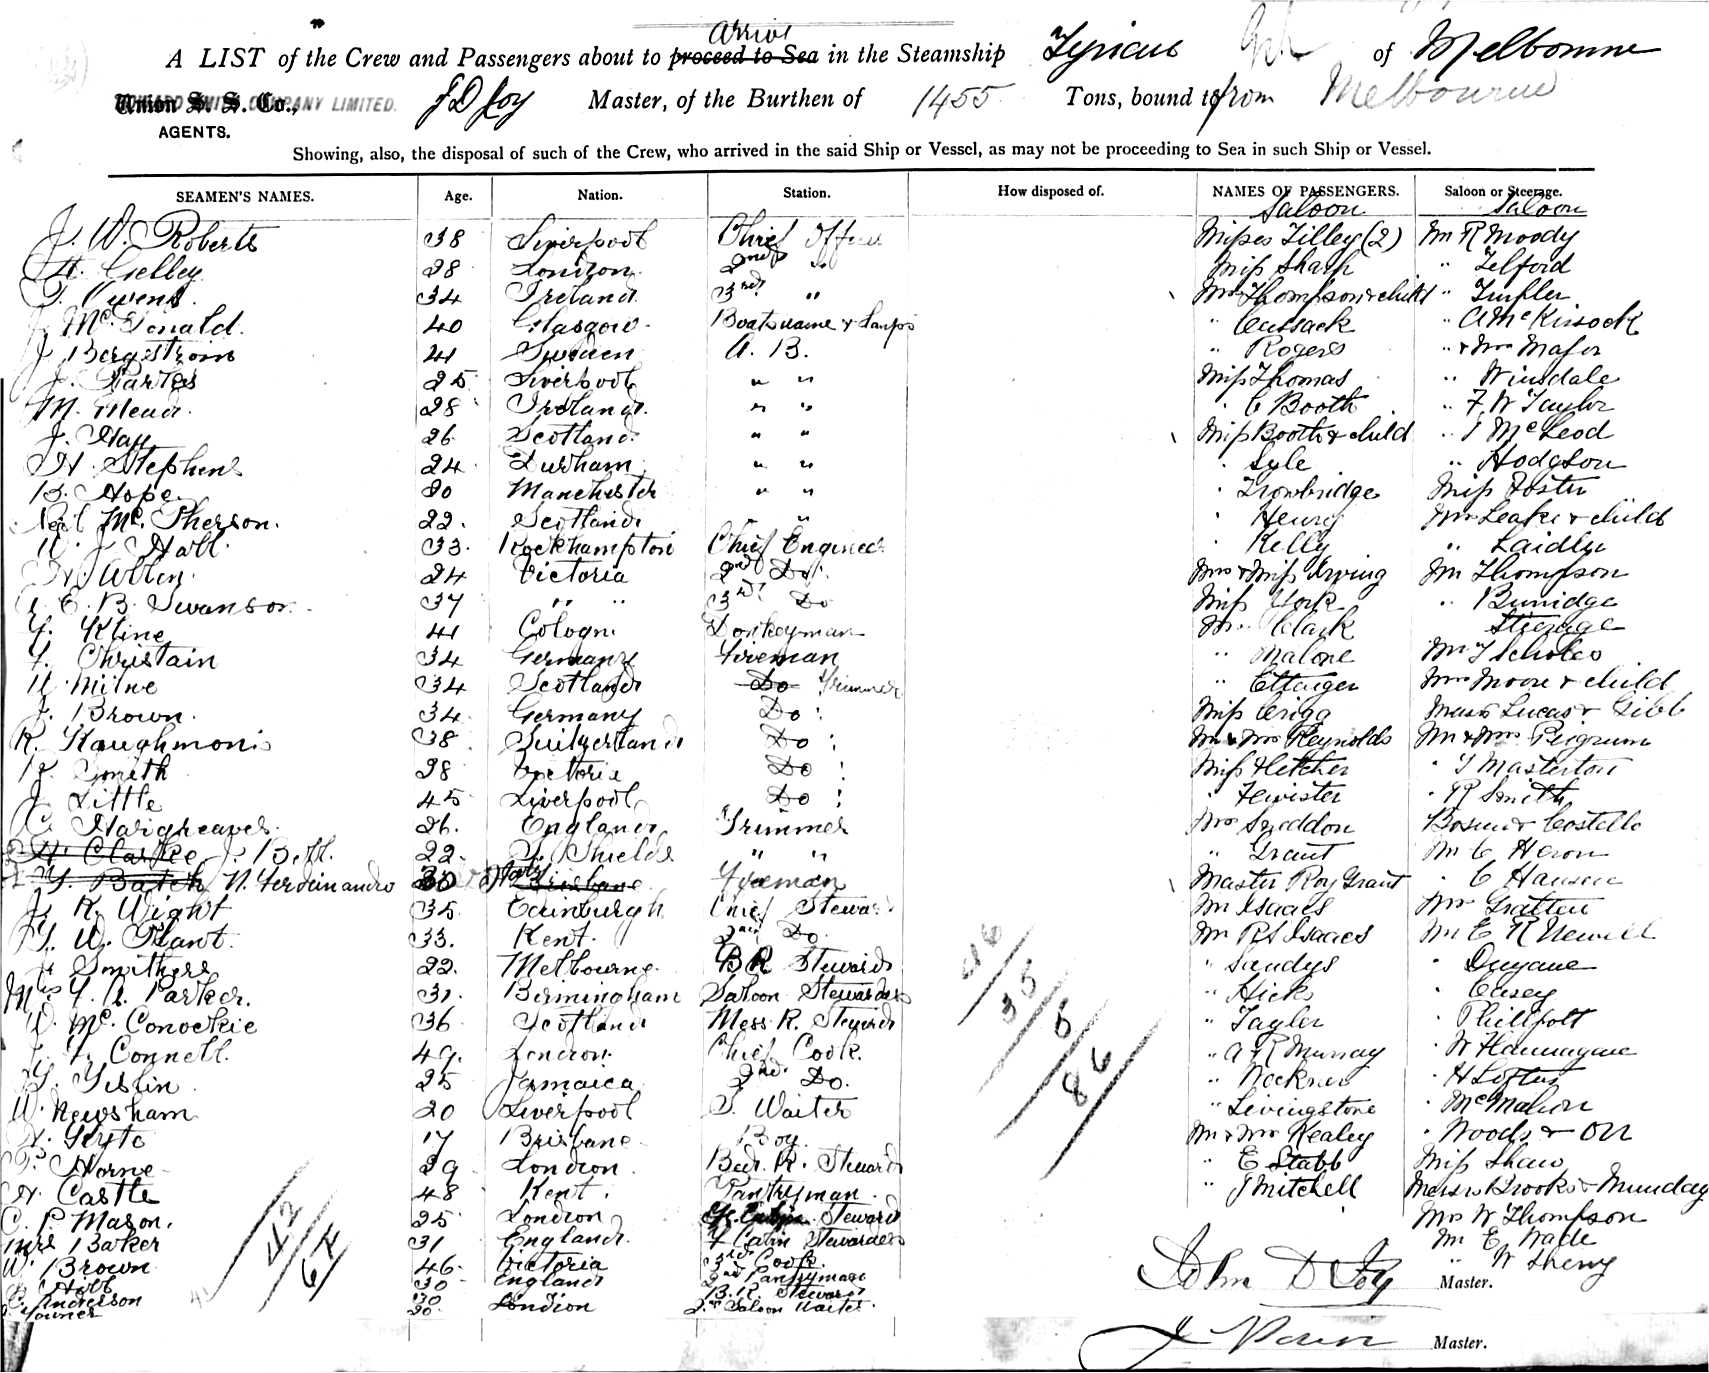 arrive
A LIST of the Crew and Passengers about to proceed to Sea in the Steamship Tyrian of Melbourne
Union S. S. Co., COMPANY LIMITED.
J D Joy Master, of the Burthen of 1455 Tons, bound to from Melbourne
AGENTS.
Showing, also, the disposal of such of the Crew, who arrived in the said Ship or Vessel, as may not be proceeding to Sea in such Ship or Vessel.
SEAMEN'S NAMES. Age. Nation. Station. How disposed of. NAMES OF PASSENGERS. Saloon or Steerage.
Saloon Saloon
J. W. Roberts 38 Liverpool Chief Officer Misses Tilley (2) Mr R Moody
H. Gelley 28 London 2nd " Miss Sharp " Telford
T. Owens 34 Ireland 3rd " Mrs Thompson & child "
J. McDonald 40 Glasgow Boatswaine & Lamps " Cussack " A McKissock
J. Bergstrom 41 Sweden A. B. " Rogers " & Mrs Major
J. Partes 25 Liverpool " " Miss Thomas " Winsdale
M. Mead 28 Ireland " " " C Booth " F. W Taylor
J. Hay 26 Scotland " " Miss Booth & child " J McLeod
H. Stephens 24 Durham " " " Lyle " Hodgson
B. Hope 20 Manchester " " " Trowbridge Miss Foster
Neil McPherson. 22. Scotland " " Henry Mrs Leake & child
W. J. Hall 33. Rockhampton Chief Engineer " Kelly " Laidley
H. Allen 24 Victoria 2nd Do. Mrs & Miss Irving Mr Thompson
A. E. B. Swanson 37 " " 3rd Do Miss York " Burridge
Steerage
F. Kline 41 Cologne Donkeyman Mr Clark
F. Christain 34 Germany Fireman " Malone Mr J Scholes
W. Milne 34 Scotland Do Trimmer " Ettinger Mrs Moore & child
J. Brown. 34. Germany Do Miss Grigg Messrs Lucas & Gibb
R. Kaughmonis 38 Switzerland Do Mr & Mrs Reynolds Mr & Mrs Pegrum
R. Smith 28 Victoria Do Miss Fletcher " J Masterton
J. Little 45 Liverpool Do " " R Smith
C. Hargreaves. 26. England Trimmer Mrs Sneddon & Costello
H. Clarke J. Bell. 22. S. Shields " " " Grant Mr C Heron
Y. Batch N. Ferdeinandro 30 Brisbane Fireman Master Roy Grant " C Hansen
J. R. Wight 35 Edinburgh Chief Steward Mr Isaacs Mr Gratten
W. Plant. 33. Kent. 2nd Do. Mr R S Isaacs Mr E R Newell
J. Smithers 22. Melbourne BR Steward " Sandys "
Mrs F. A. Parker. 31. Birmingham Saloon Stewardess " Hicks " Casey
W. McConockie 36 Scotland Mess. R. Steward " Tayler " Phillpott
J. F. Connell. 49. London Chief Cook. " A & R Murray " W Hannagane
Y. Yeslin 25 Jamaica 2nd Do. " Neckner " H Loftus
W. Newsham 20 Liverpool S. Waiter " Livingstone " McMahon
H. 17 Brisbane Boy. Mr & Mrs Kealey " Woods & Orr
F. Horne 29 London. Bed. R. Steward " E Stabb Miss Shaw
H. Castle 48 Kent. Pantryman. " J Mitchell Messrs Brooks & Munday
C. P. Mason. 25 London Steward Mrs W Thompson
Mrs Baker 31 England. F Cabin Stewardess Mr E Wade
W. Brown 46 Victoria 3rd Cook " W Sherry
Holl 30 England 2nd Pantryman
E. Anderson 30 B. R. Steward
20. London 2nd Saloon Waiter.
46
35
5
86
42
64
John D Joy Master.
Master.